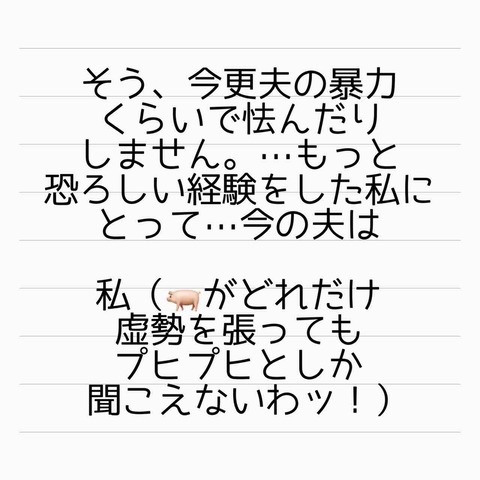 そう、今更夫の暴力
くらいで怯んだり
しません。…もっと
恐ろしい経験をした私に
とって…今の夫は
私（🐖がどれだけ
虚勢を張っても
プヒプヒとしか
聞こえないわッ！）